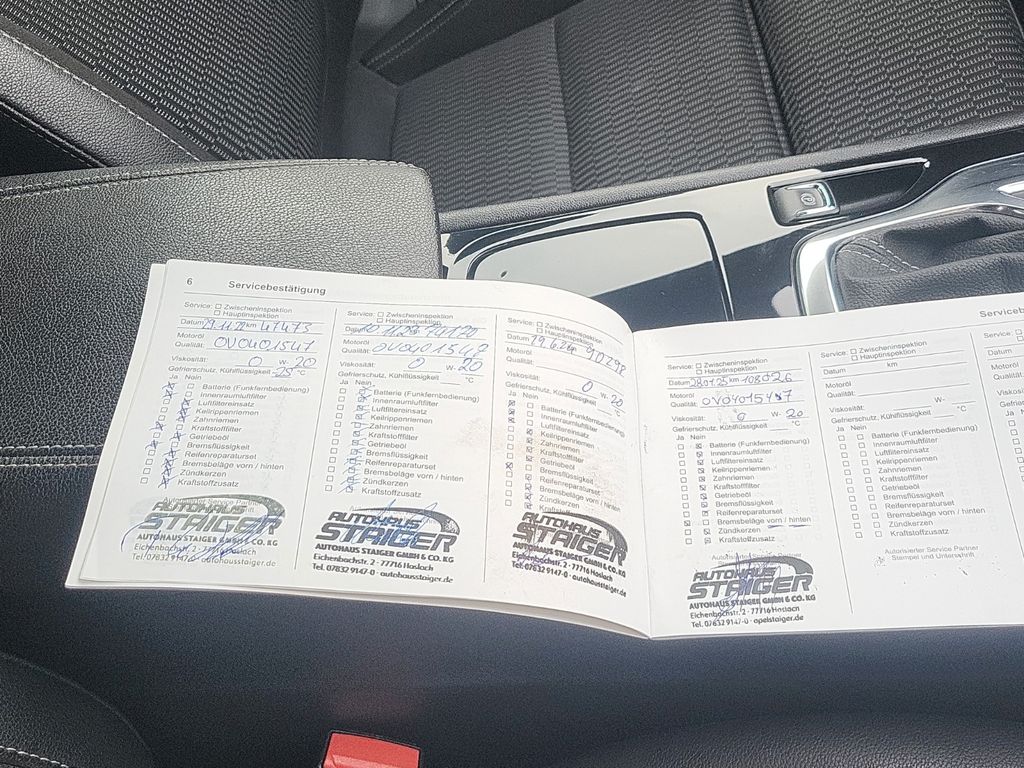 6 Servicebestätigung
Service: Zwischeninspektion
Hauptinspektion
Datum 29.11.22 km 47473
Motoröl
Qualität: OV0401547
Viskosität: 0 W- 20
Gefrierschutz, Kühlflüssigkeit -25 °C
Ja Nein
Batterie (Funkfernbedienung)
Innenraumluftfilter
Luftfiltereinsatz
Keilrippenriemen
Zahnriemen
Kraftstofffilter
Getriebeöl
Bremsflüssigkeit
Reifenreparaturset
Bremsbeläge vorn / hinten
Zündkerzen
Kraftstoffzusatz
Autorisierter Service Partner
AUTOHAUS
STAIGER
AUTOHAUS STAIGER GMBH & CO. KG
Eichenbachstr. 2 · 77716 Haslach
Tel. 07832 9147-0 · autohausstaiger.de
Service: Zwischeninspektion
Hauptinspektion
Datum
Motoröl
Qualität: OV0401547
Viskosität: 0 W- 20
Gefrierschutz, Kühlflüssigkeit °C
Ja Nein
Batterie (Funkfernbedienung)
Innenraumluftfilter
Luftfiltereinsatz
Keilrippenriemen
Zahnriemen
Kraftstofffilter
Getriebeöl
Bremsflüssigkeit
Reifenreparaturset
Bremsbeläge vorn / hinten
Zündkerzen
Kraftstoffzusatz
AUTOHAUS
STAIGER
AUTOHAUS STAIGER GMBH & CO. KG
Eichenbachstr. 2 · 77716 Haslach
Tel. 07832 9147-0 · autohausstaiger.de
Service: Zwischeninspektion
Hauptinspektion
Datum 90298
Motoröl
Qualität:
Viskosität: 0 W- 20
Gefrierschutz, Kühlflüssigkeit °C
Ja Nein
Batterie (Funkfernbedienung)
Innenraumluftfilter
Luftfiltereinsatz
Keilrippenriemen
Zahnriemen
Kraftstofffilter
Getriebeöl
Bremsflüssigkeit
Reifenreparaturset
Bremsbeläge vorn / hinten
Zündkerzen
Kraftstoffzusatz
AUTOHAUS
STAIGER
AUTOHAUS STAIGER GMBH & CO. KG
Eichenbachstr. 2 · 77716 Haslach
Tel. 07832 9147-0 · autohausstaiger.de
Service: Zwischeninspektion
Hauptinspektion
Datum 28.01.25 km 108026
Motoröl
Qualität: OV0401547
Viskosität: 0 W- 20
Gefrierschutz, Kühlflüssigkeit °C
Ja Nein
Batterie (Funkfernbedienung)
Innenraumluftfilter
Luftfiltereinsatz
Keilrippenriemen
Zahnriemen
Kraftstofffilter
Getriebeöl
Bremsflüssigkeit
Reifenreparaturset
Bremsbeläge vorn / hinten
Zündkerzen
Kraftstoffzusatz
AUTOHAUS
STAIGER
AUTOHAUS STAIGER GMBH & CO. KG
Eichenbachstr. 2 · 77716 Haslach
Tel. 07832 9147-0 · opelstaiger.de
Service: Zwischeninspektion
Hauptinspektion
Datum km
Motoröl
Qualität:
Viskosität: W-
Gefrierschutz, Kühlflüssigkeit °C
Ja Nein
Batterie (Funkfernbedienung)
Innenraumluftfilter
Luftfiltereinsatz
Keilrippenriemen
Zahnriemen
Kraftstofffilter
Getriebeöl
Bremsflüssigkeit
Reifenreparaturset
Bremsbeläge vorn / hinten
Zündkerzen
Kraftstoffzusatz
Autorisierter Service Partner
Stempel und Unterschrift